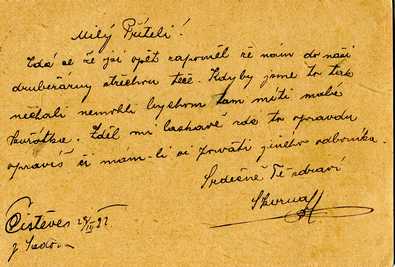 Milý Příteli!
Zdá se že jsi opět zapoměl že nám do naší
drubežárny střechou teče. Kdyby jsme to tak
nechali nemohli bychom tam míti malé
kuřátka. Zděl mi laskavě zda to opravdu
opravíš či mám-li si pozvati jiného odborníka.
Srdečně Tě zdraví
Čistěves